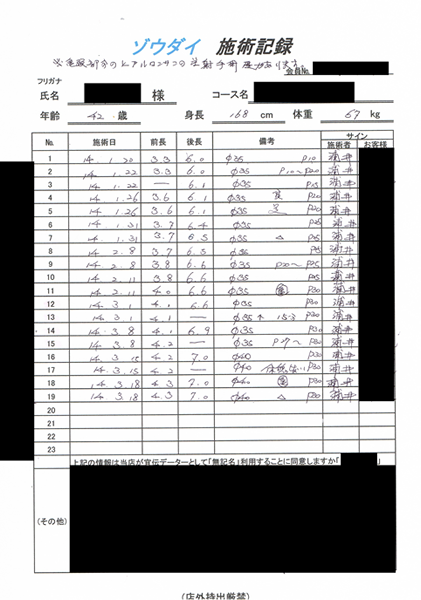 ゾウダイ 施術記録
会員No.
フリガナ
氏名 様 コース名
年齢 42 歳 身長 168 cm 体重 67 kg
サイン
No. 施術日 前長 後長 備考 施術者 お客様
1 14.1.20 3.3 6.0 φ35 P10
2 14.1.22 3.3 6.0 φ35 P10〜P20
3 14.1.22 — 6.1 φ35 P15
4 14.1.26 3.6 6.1 φ35 P20
5 14.1.26 3.6 6.1 φ35 P20
6 14.1.31 3.7 6.4 φ35 P25
7 14.1.31 3.7 6.5 φ35 △ P25
8 14.2.8 3.7 6.5 φ35 P25
9 14.2.8 3.8 6.6 φ35 P20〜P25
10 14.2.11 3.8 6.6 φ35 P25
11 14.2.11 4.0 6.6 φ35 P30
12 14.3.1 4.1 6.6 φ35 P30
13 14.3.1 4.1 — φ35 P20
14 14.3.8 4.1 6.9 φ35 P30
15 14.3.8 4.2 — φ35 P30
16 14.3.15 4.2 7.0 φ40 P30
17 14.3.15 4.2 — φ40 P30
18 14.3.18 4.3 7.0 φ40 P30
19 14.3.18 4.3 7.0 φ40 △ P30
20
21
22
23
上記の情報は当店が宣伝データーとして「無記名」利用することに同意しますか「 」
(その他)
(店外持出厳禁)